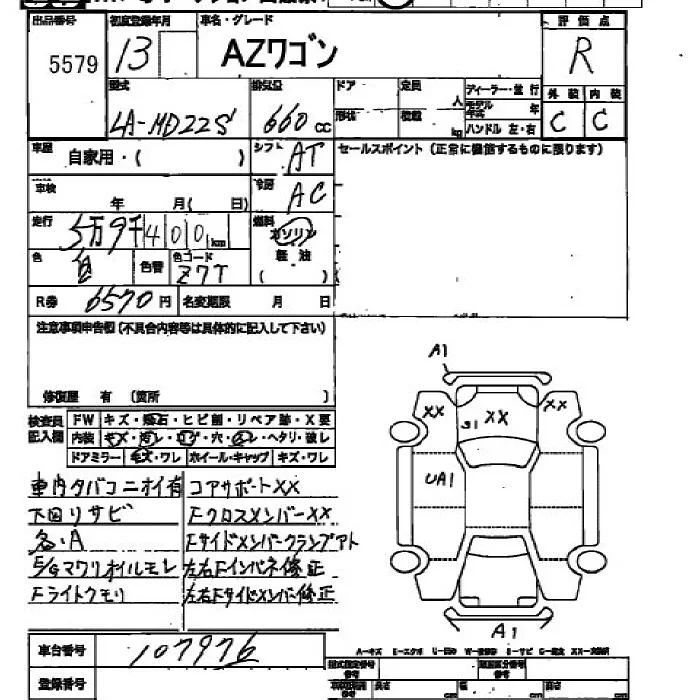 出品番号 初度登録年月 車名・グレード 評価点
5579 13 AZワゴン R
型式 排気量 ドア 定員 ディーラー・並行 外装 内装
LA-MD22S 660cc 形状 人 積載 kg モデル年式 年 ハンドル 左・右 C C
車歴 自家用・( ) シフト AT セールスポイント (正常に機能するものに限ります)
車検 年 月( 日) 冷房 AC
走行 5万9千400km 燃料 ガソリン
色 色替 色コード Z7T 軽油
( )
R券 6570円 名変期限 月 日
注意事項申告欄(不具合内容等は具体的に記入して下さい)
修復歴 有 (箇所 )
検査員記入欄 FW キズ・飛石・ヒビ割・リペア跡・X要
内装 キズ・汚レ・コゲ・穴・スレ・ヘタリ・破レ
ドアミラー キズ・ワレ ホイール・キャップ キズ・ワレ
A1
XX XX XX
S1
UA1
A1
車内タバコニオイ有 コアサポートXX
下回リサビ FクロスメンバーXX
各・A Fサイドメンバークランプアト
E/Gマワリオイルモレ 左右Fインパネ修正
Fライトクモリ 左右Fサイドメンバー修正
車台番号 107976
A-キズ E-エクボ
型式指定番号 類別区分番号
登録番号 長さ cm 幅 cm 高さ cm